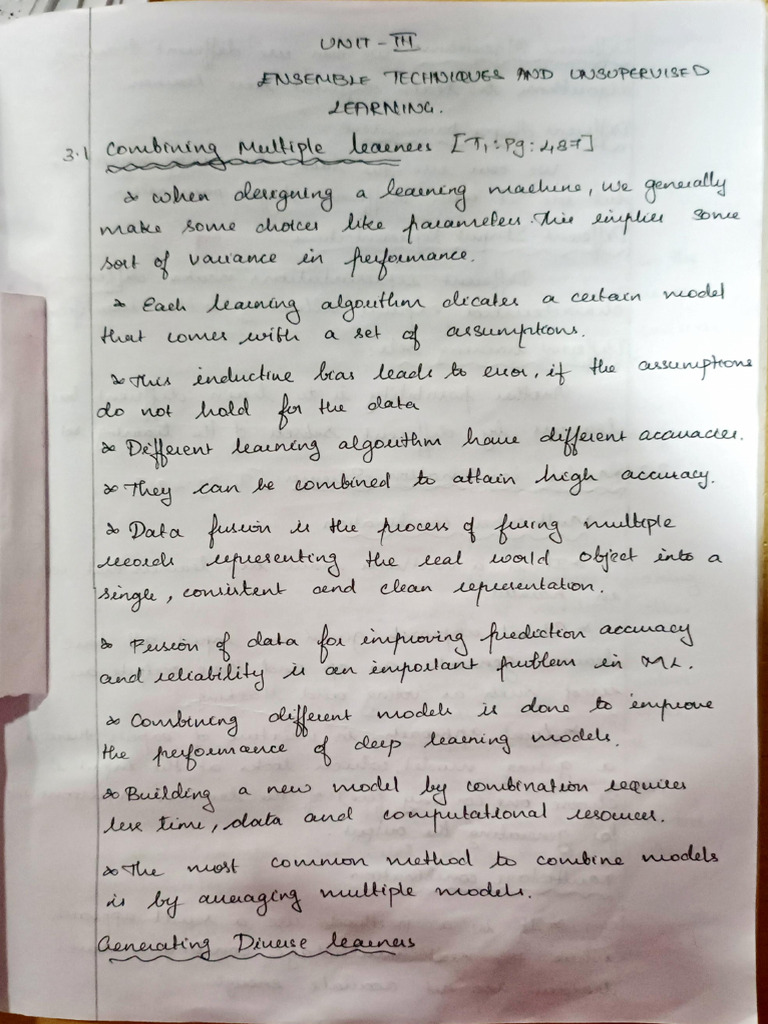 UNIT - III
ENSEMBLE TECHNIQUES AND UNSUPERVISED
LEARNING.
3.1 Combining Multiple learners [T1: Pg: 487]
* When designing a learning machine, we generally
make some choices like parameters. This implies some
sort of variance in performance.
* Each learning algorithm dicates a certain model
that comes with a set of assumptions.
* This inductive bias leads to error, if the assumptions
do not hold for the data
* Different learning algorithm have different accuracies.
* They can be combined to attain high accuracy.
* Data fusion is the process of fusing multiple
records representing the real world object into a
single, consistent and clean representation.
* Fusion of data for improving prediction accuracy
and reliability is an important problem in ML.
* Combining different models is done to improve
the performance of deep learning models.
* Building a new model by combination requires
less time, data and computational resources.
* The most common method to combine models
is by averaging multiple models.
Generating Diverse learners